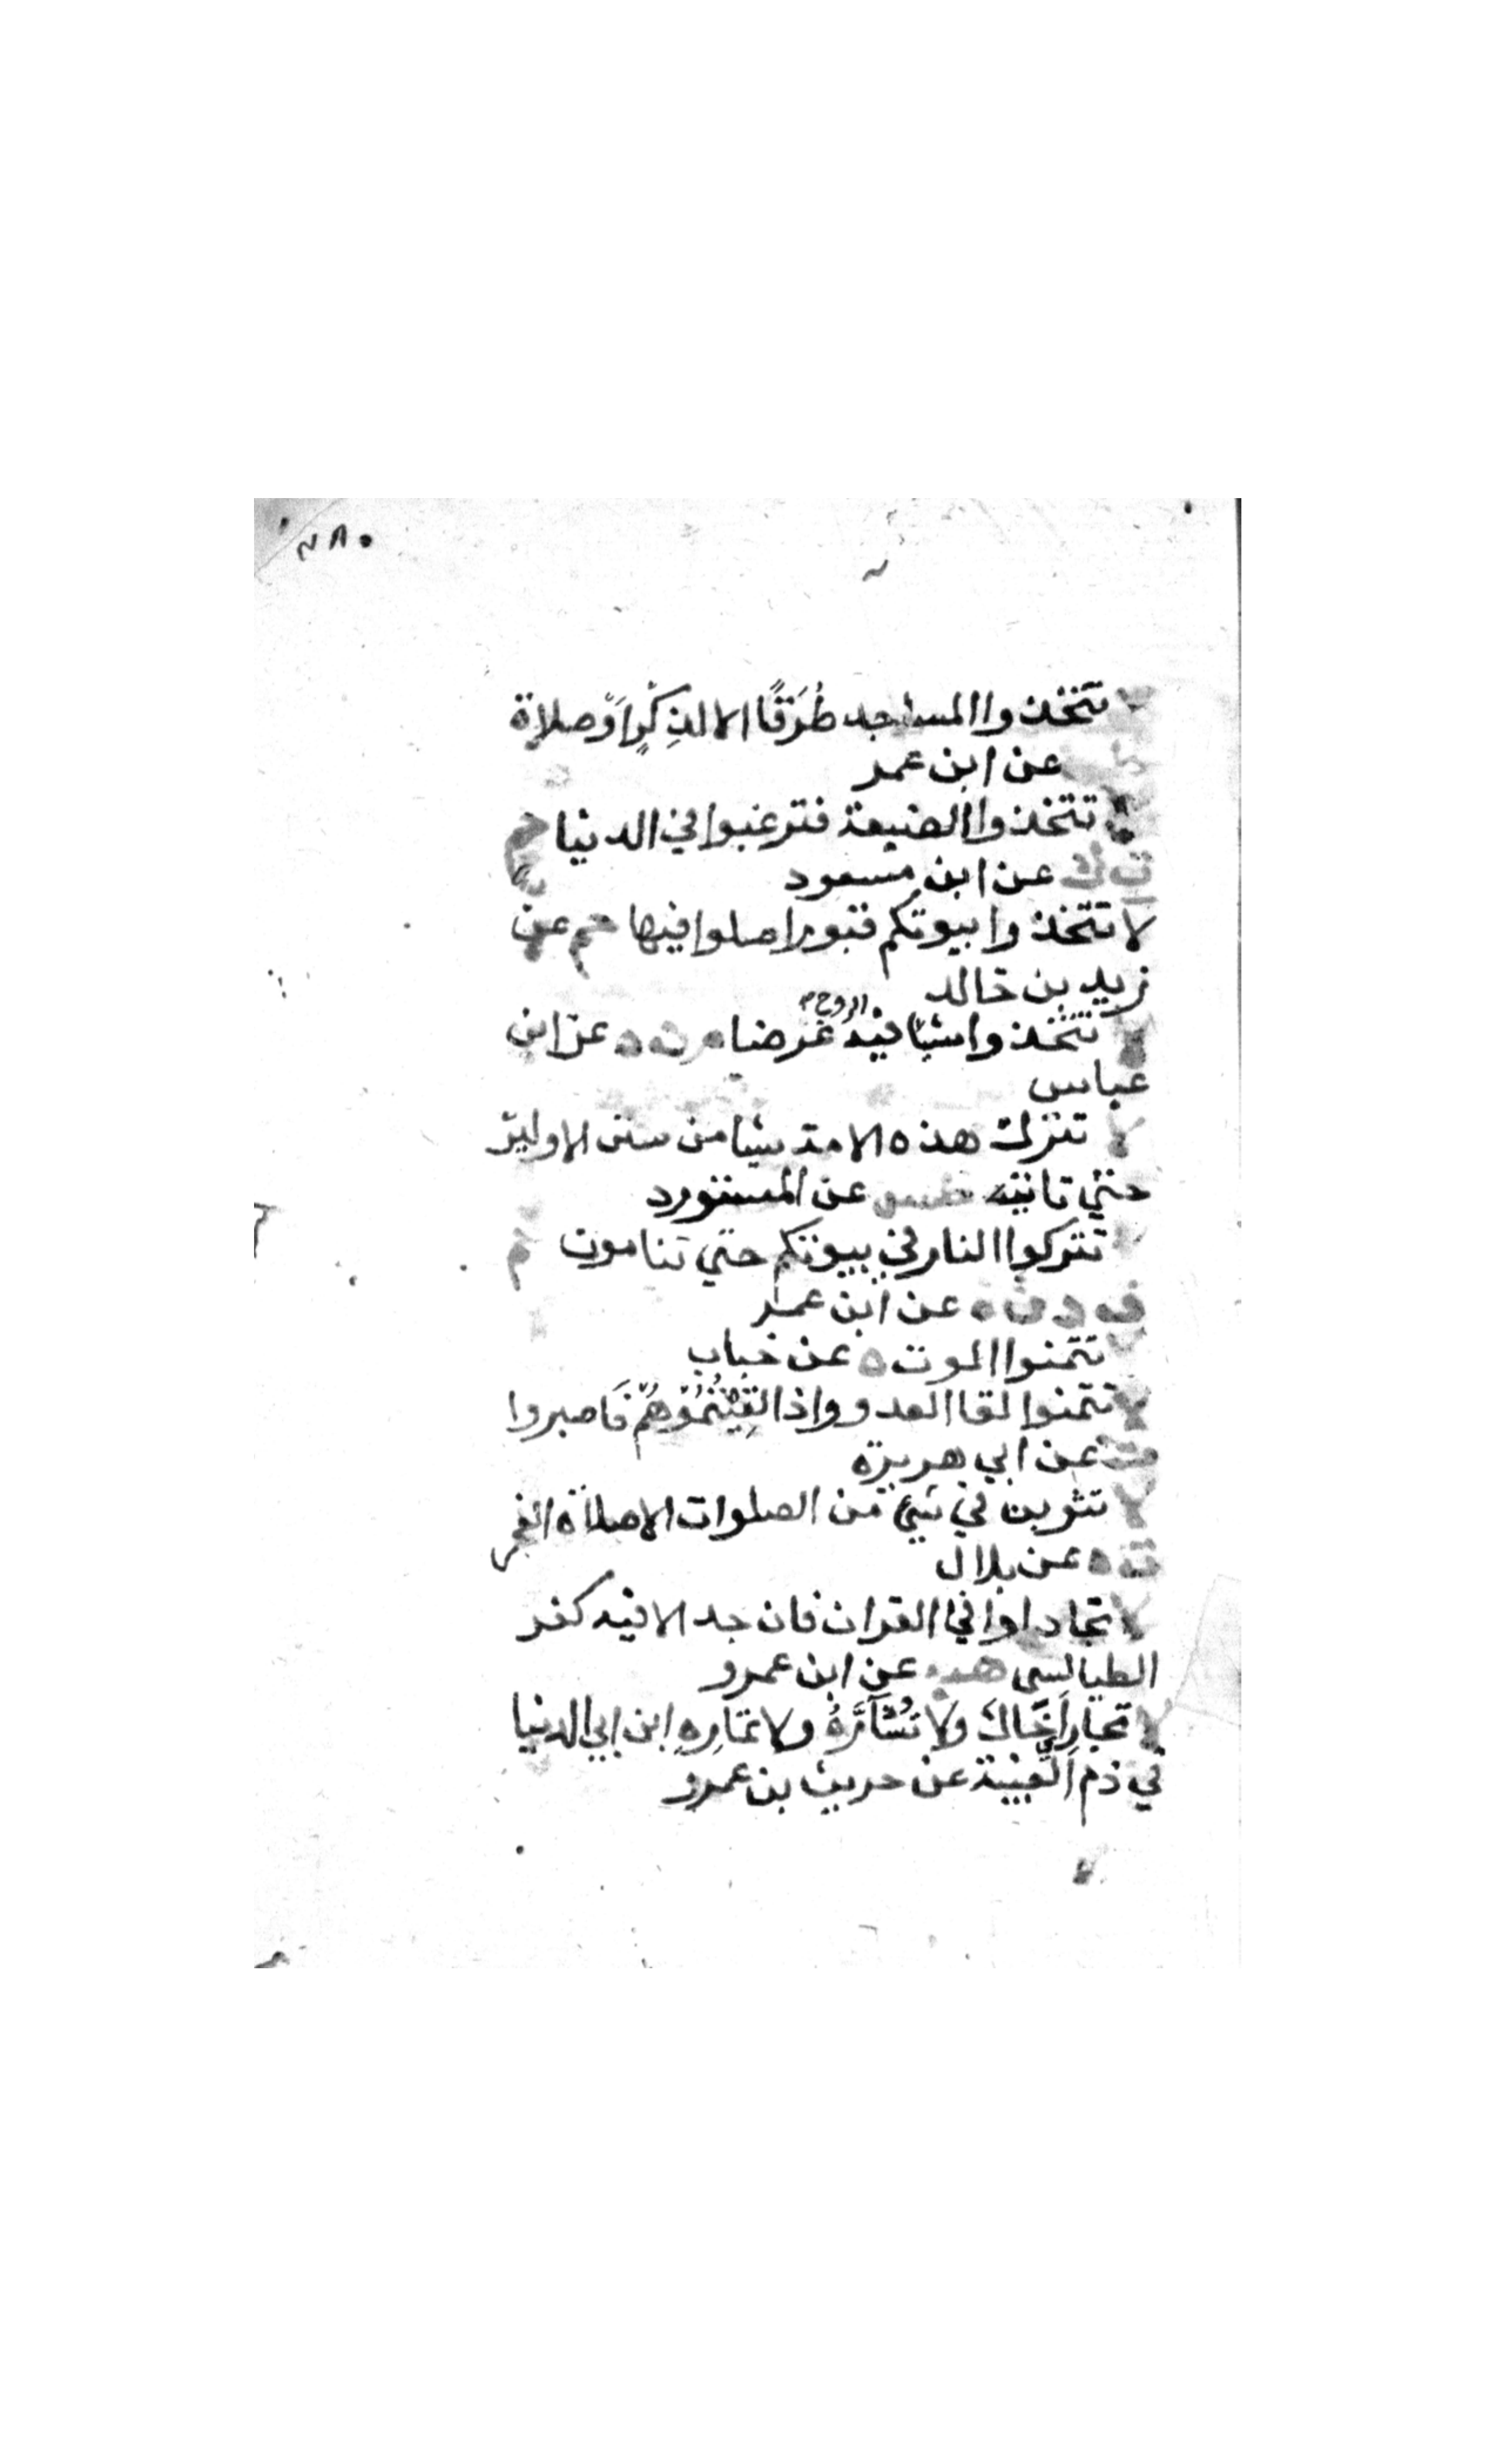 ٢٨٠
لا تتخذوا المساجد طُرَقًا الا لذِكْرٍ اَوْ صلاة
عن ابن عمر
تتخذوا الضيعة فترغبوا في الدنيا حم
ت ك عن ابن مسعود
لا تتخذوا بيوتكم قبورا صلوا فيها حم عن
زيد بن خالد
لا تتخذوا شيا فيه الروح غَرضا م ت ه عن ابن
عباس
لا تترك هذه الامة شيا من سنن الاولين
حتي تاتيه طس عن المستورد
لا تتركوا النار في بيوتكم حتي تنامون حم
ق د ت ه عن ابن عمر
لا تتمنوا الموت ه عن خباب
لا تتمنوا لقا العدو واذا لقِيْتُمُوْهُمْ فَاصبروا
ق عن ابي هريرة
لا تثوبن في شيء من الصلوات الا صلاة الفجر
ت ه عن بلال
لا تجادلوا في القران فان جدالا فيه كفر
الطيالسي هب عن ابن عمرو
لا تجارِ اَخَاكَ ولَا تُشَارَّهُ ولا تمَارِهِ ابن ابي الدنيا
في ذم الغيبة عن حريث بن عمرو
لا